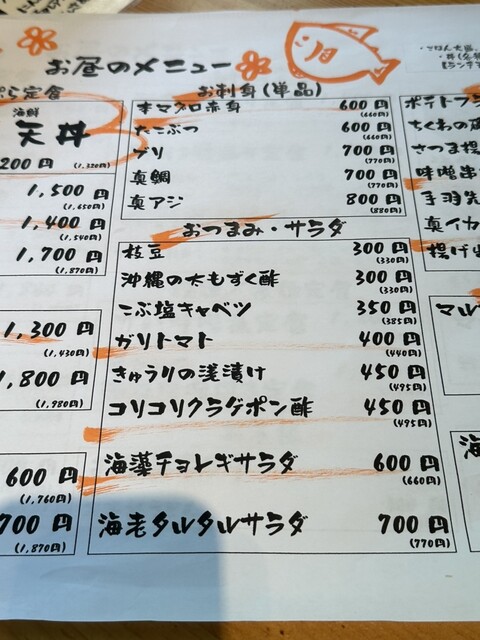 お昼のメニュー
ぷら定食
海鮮
天丼
200円
(1,320円)
1,500円
(1,650円)
1,400円
(1,540円)
1,700円
(1,870円)
1,300円
(1,430円)
1,800円
(1,980円)
600円
(1,760円)
700円
(1,870円)
お刺身(単品)
本マグロ赤身 600円
(660円)
たこぶつ 600円
(660円)
ブリ 700円
(770円)
真鯛 700円
(770円)
真アジ 800円
(880円)
おつまみ・サラダ
枝豆 300円
(330円)
沖縄の太もずく酢 300円
(330円)
こぶ塩キャベツ 350円
(385円)
ガリトマト 400円
(440円)
きゅうりの浅漬け 450円
(495円)
コリコリクラゲポン酢 450円
(495円)
海藻チョレギサラダ 600円
(660円)
海老タルタルサラダ 700円
(770円)
・ごはん大盛
ポテトフラ
ちくわの
さつま揚
味噌串
手羽先
真イカ
揚げ出
マル
海